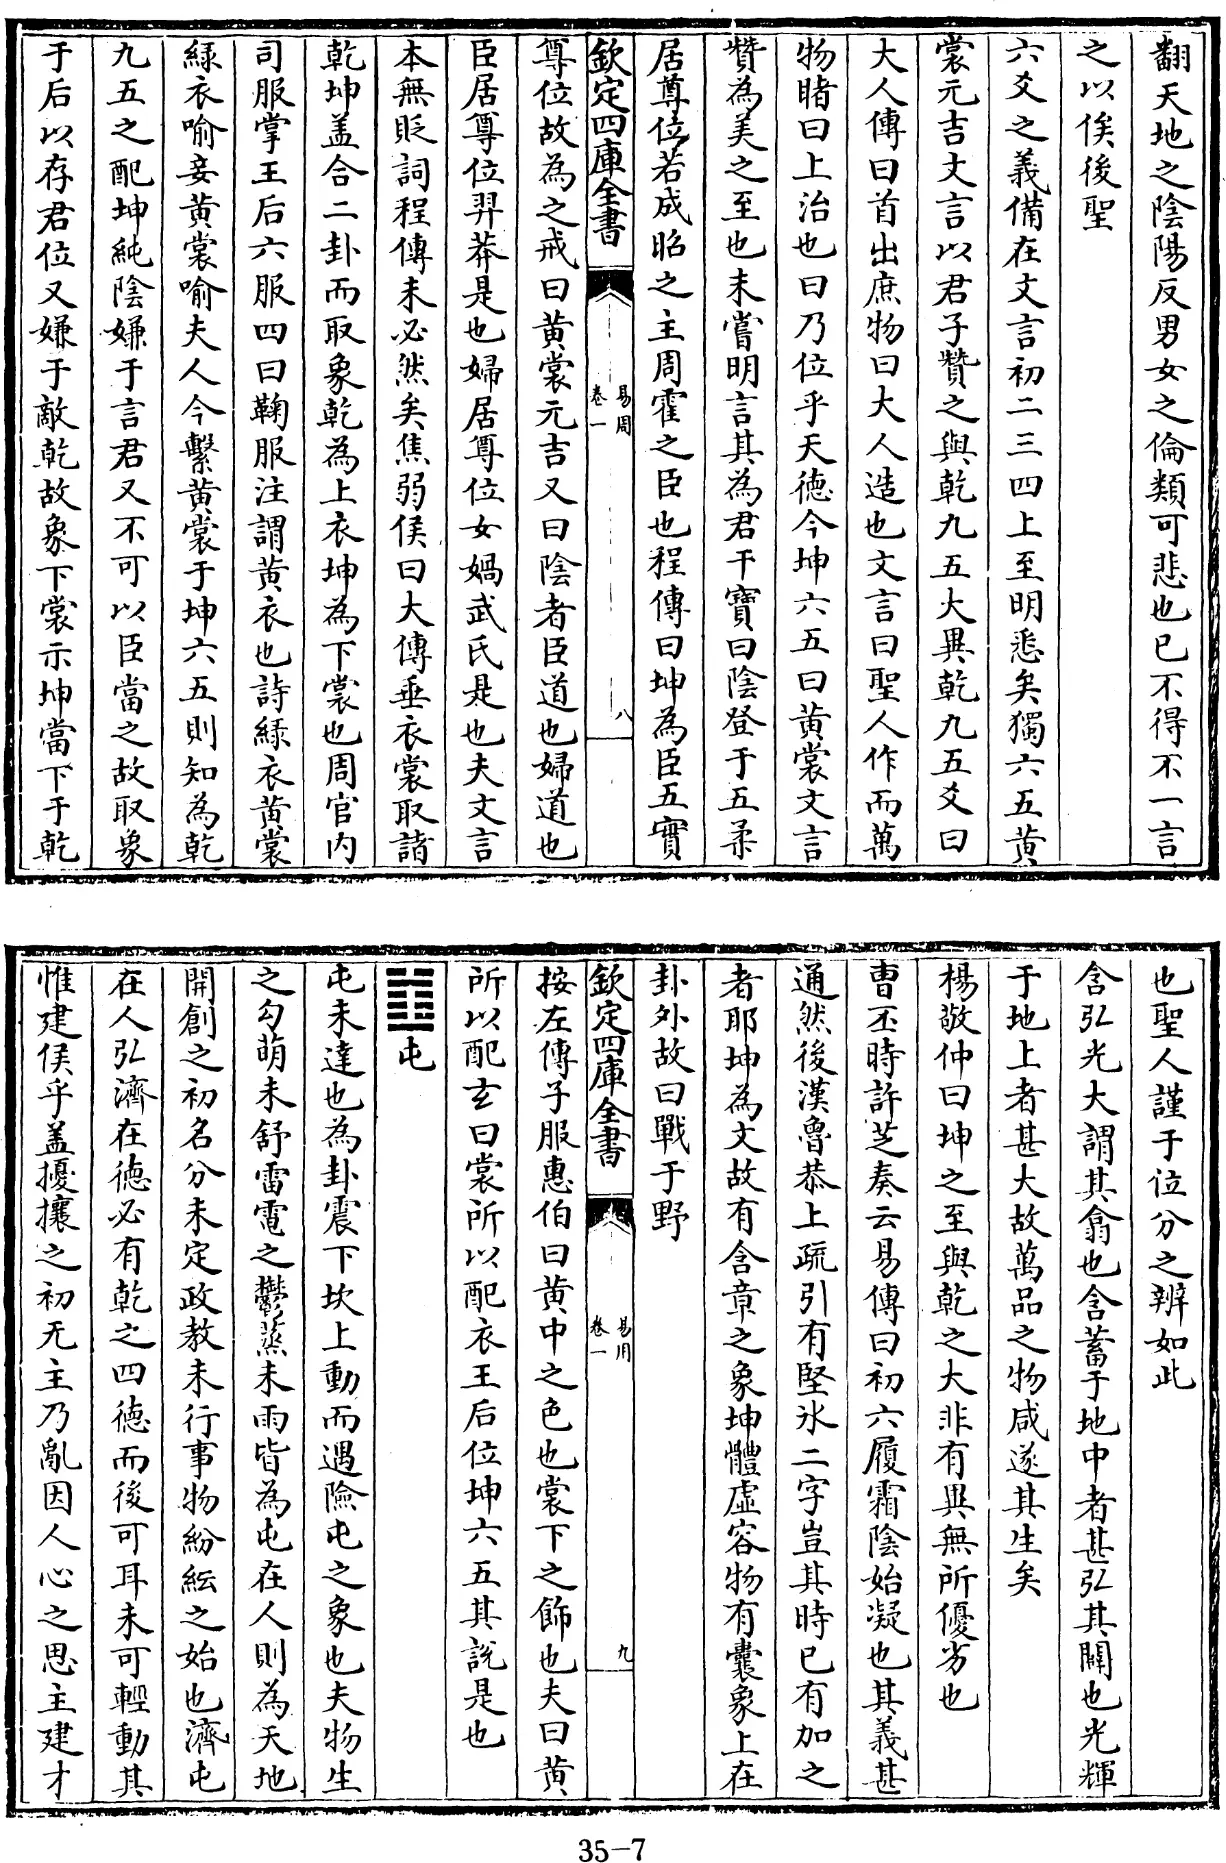 翻天地之陰陽反男女之倫類可悲也已不得不一言
之以俟後聖
六爻之義備在文言初二三四上至明悉矣獨六五黄
裳元吉文言以君子贊之與乾九五大異乾九五爻曰
大人傳曰首出庶物曰大人造也文言曰聖人作而萬
物睹曰上治也曰乃位乎天德今坤六五曰黄裳文言
贊為美之至也未嘗明言其為君干寶曰陰登于五柔
居尊位若成昭之主周霍之臣也程傳曰坤為臣五實
欽定四庫全書
易周
卷一
八
尊位故為之戒曰黄裳元吉又曰陰者臣道也婦道也
臣居尊位羿莽是也婦居尊位女媧武氏是也夫文言
本無貶詞程傳未必然矣焦弱侯曰大傳垂衣裳取諸
乾坤盖合二卦而取象乾為上衣坤為下裳也周官内
司服掌王后六服四曰鞠服注謂黄衣也詩緑衣黄裳
緑衣喻妾黄裳喻夫人今繫黄裳于坤六五則知為乾
九五之配坤純陰嫌于言君又不可以臣當之故取象
于后以存君位又嫌于敵乾故象下裳示坤當下于乾
也聖人謹于位分之辨如此
含弘光大謂其翕也含蓄于地中者甚弘其闢也光輝
于地上者甚大故萬品之物咸遂其生矣
楊敬仲曰坤之至與乾之大非有異無所優劣也
曹丕時許芝奏云易傳曰初六履霜陰始凝也其義甚
通然後漢魯恭上疏引有堅氷二字豈其時已有加之
者耶坤為文故有含章之象坤體虛容物有囊象上在
卦外故曰戰于野
欽定四庫全書
易用
卷一
九
按左傳子服惠伯曰黄中之色也裳下之飾也夫曰黄
所以配玄曰裳所以配衣王后位坤六五其說是也
䷂屯
屯未達也為卦震下坎上動而遇險屯之象也夫物生
之勾萌未舒雷電之鬱蒸未雨皆為屯在人則為天地
開創之初名分未定政教未行事物紛紜之始也濟屯
在人弘濟在德必有乾之四德而後可耳未可輕動其
惟建侯乎盖擾攘之初无主乃亂因人心之思主建才
35-7